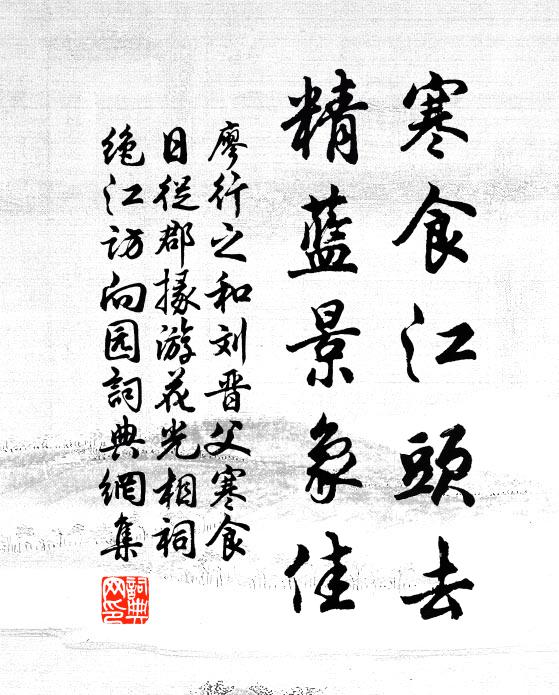 寒食江頭去
精藍景象佳
廖行之和刘晋父寒食
日從郡掾游花光相祠
絶江访向园詞典網集
詞典網印